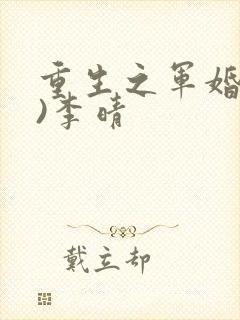 重生之军婚
)李晴
戴立却